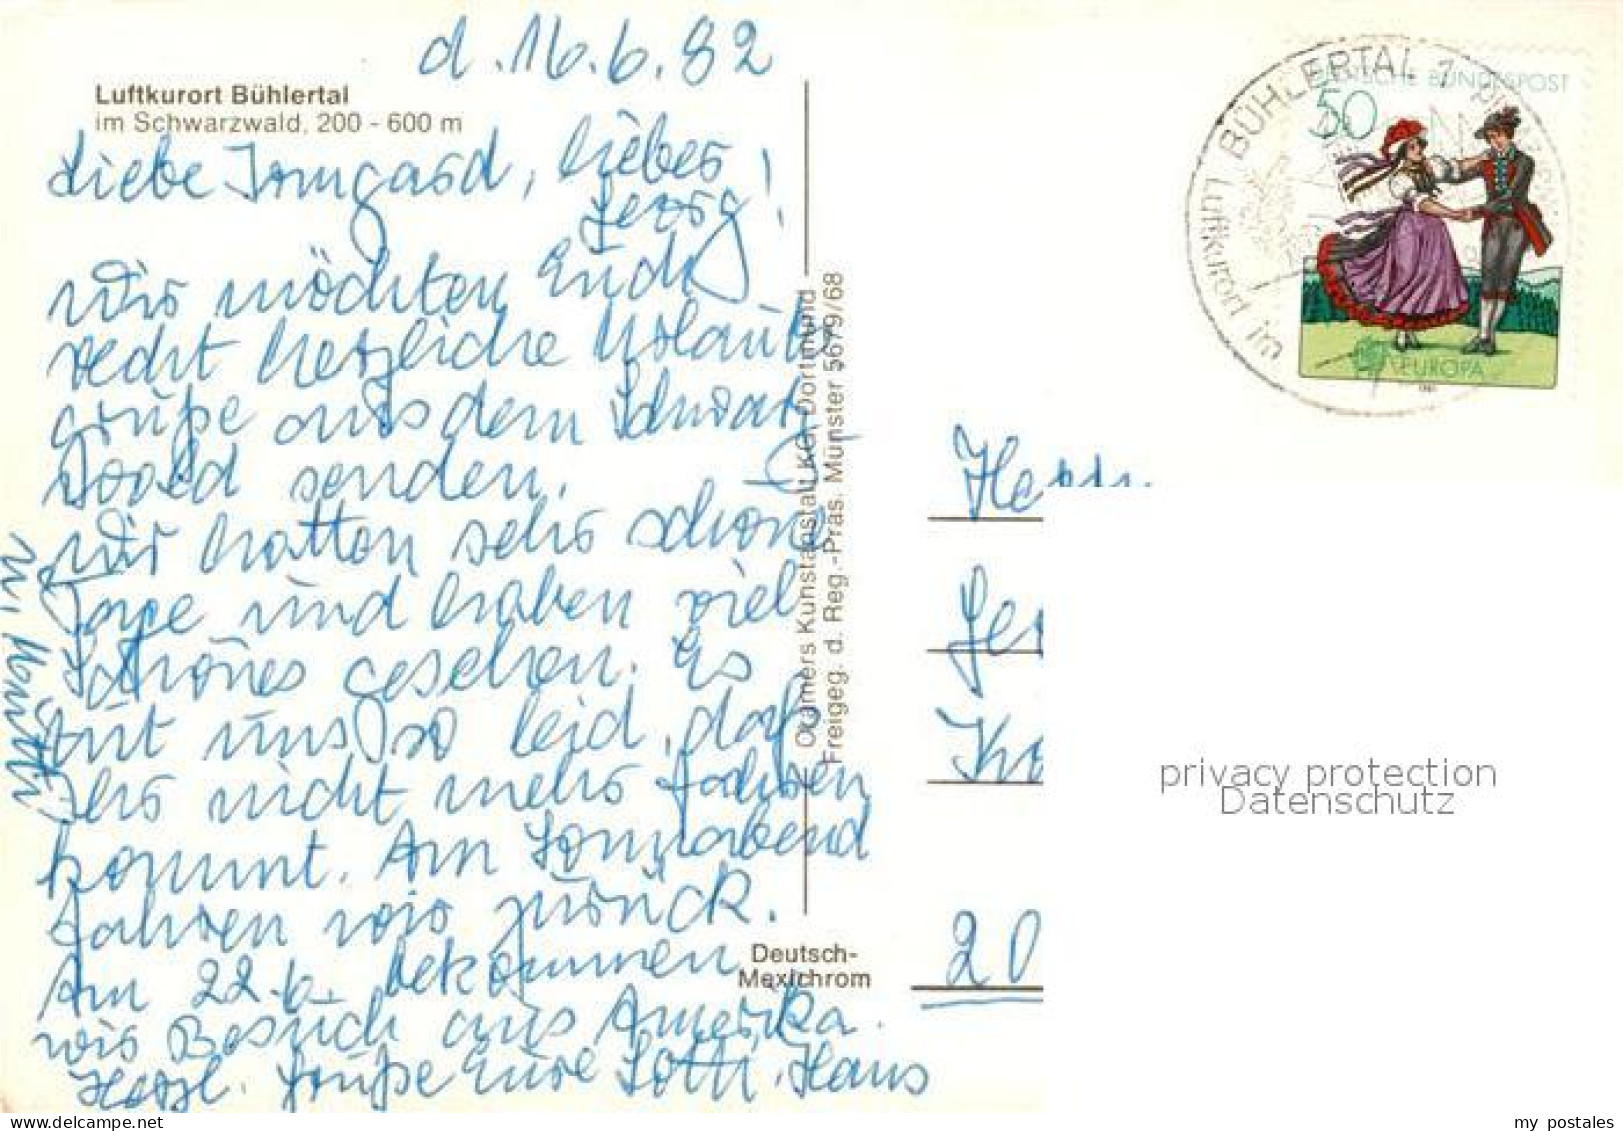 d. 16.6.82
Luftkurort Bühlertal
im Schwarzwald, 200 - 600 m
Liebe Irmgard, liebes
Georg!
Wir möchten Euch
recht herzliche Urlaubs
grüße aus dem Schwarz
wald senden.
Wir hatten sehr schöne
Tage und haben viel
Schönes gesehen. Es
tut uns so leid, daß
Ihr nicht mehr fahren
kommt. Am Sonnabend
fahren wir zurück.
Am 22.6. bekommen
wir Besuch aus Amerika.
Herzl. Grüße Eure Lotti, Hans
Cramers Kunstanstalt KG, Dortmund
Freigeg. d. Reg.-Präs. Münster 5679/68
Deutsch-
Mexichrom
DEUTSCHE BUNDESPOST
50
EUROPA
BÜHLERTAL
Luftkurort im
20
privacy protection
Datenschutz
my postales